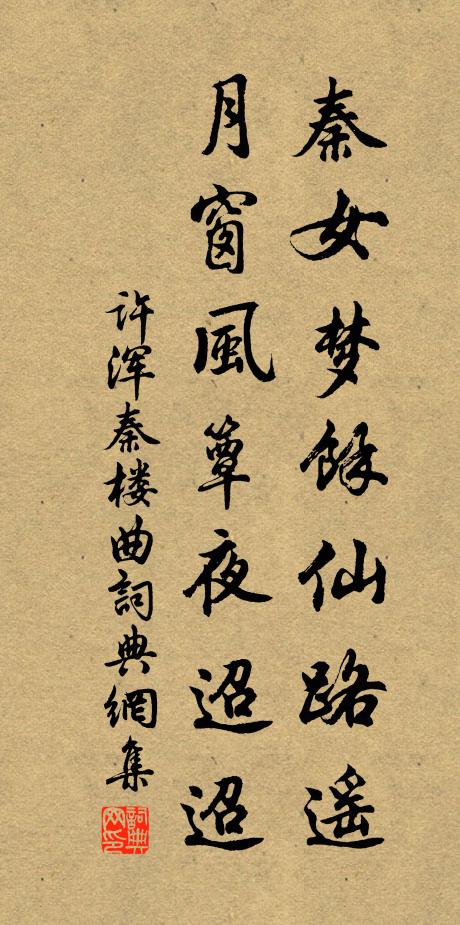 秦女梦餘仙路遥
月窗風簟夜迢迢
许浑秦楼曲詞典網集
詞典网印